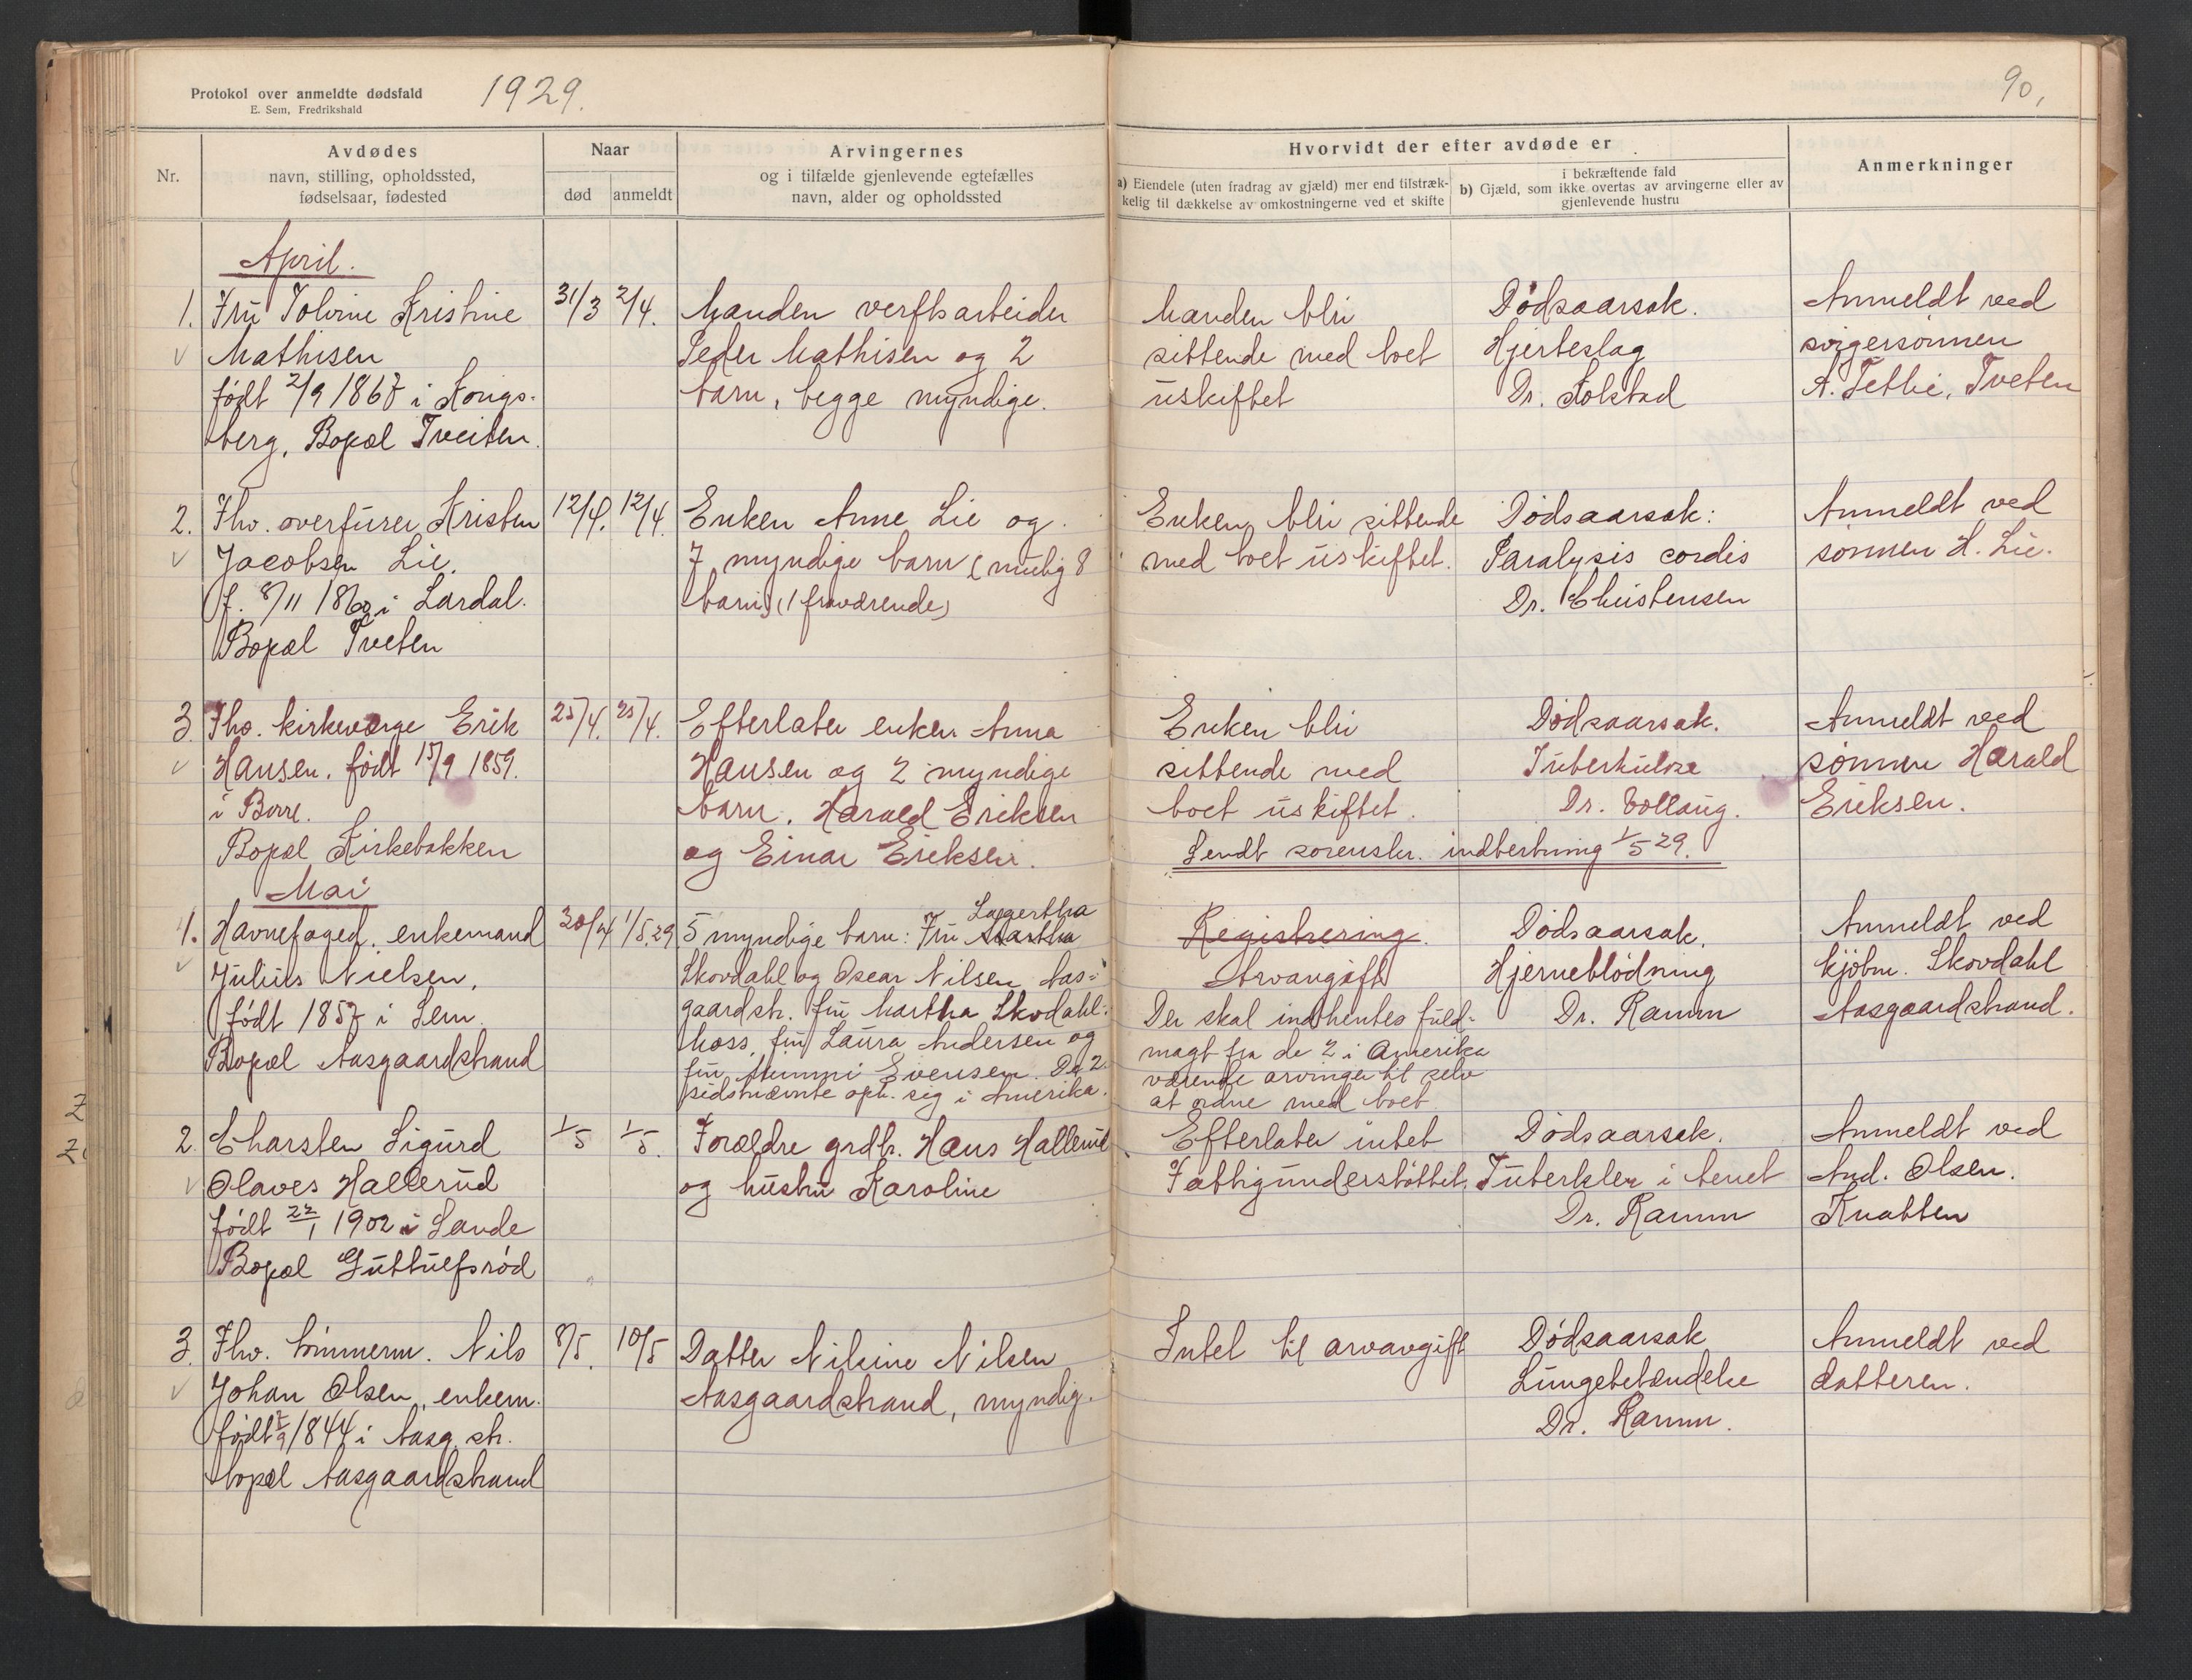 Protokol over anmeldte dødsfald
E. Sem, Fredrikshald
1929.
90,
Nr.
Avdødes
navn, stilling, opholdssted,
fødselsaar, fødested
Naar
død
anmeldt
Arvingernes
og i tilfælde gjenlevende egtefælles
navn, alder og opholdssted
Hvorvidt der efter avdøde er
a) Eiendele (uten fradrag av gjæld) mer end tilstræk-
kelig til dækkelse av omkostningerne ved et skifte
i bekræftende fald
b) Gjæld, som ikke overtas av arvingerne eller av
gjenlevende hustru
Anmerkninger
April.
1.
Fru Tolvine Kristine
Mathisen
født 2/9 1867 i Kongs-
berg, Bopæl Tveiten.
31/3
2/4.
Manden verftsarbeider
Peder Mathisen og 2
barn, begge myndige.
Manden bli
sittende med boet
uskiftet
Dødsaarsak.
Hjerteslag
Dr. Kolstad
Anmeldt ved
svigersønnen
A. Tethie, Tveten
2.
Fhv. overfurer Kristen
Jacobsen Lie.
f. 8/11 1860 i Lardal.
Bopæl Tveten
12/4.
12/4.
Enken Anne Lie og
7 myndige barn (mulig 8
barn) (1 fraværende)
Enken bli sittende
med boet uskiftet.
Dødsaarsak:
Paralysis cordis
Dr. Christensen
Anmeldt ved
sønnen H. Lie.
3.
Fhv. kirkeværge Erik
Hansen, født 15/9 1859.
i Borre.
Bopæl Kirkebakken
25/4.
25/4.
Efterlater enken Anna
Hansen og 2 myndige
barn, Harald Eriksen
og Einar Eriksen.
Enken bli
sittende med
boet uskiftet.
Dødsaarsak.
Tuberkulose
Dr. Vollaug.
Anmeldt ved
sønnen Harald
Eriksen.
Sendt sorenskr. indberetning 1/5 29.
Mai
1.
Havnefoged, enkemand
Julius Nielsen,
født 1857 i Sem.
Bopæl Aasgaardstrand
30/4
1/5.29
Lagertha
5 myndige barn: Fru Martha
Skovdahl og Oscar Nilsen Aas-
gaardstr. fru Martha Skovdahl
Moss, fru Laura Andersen og
fru Minni Evensen. De 2
sidstnævnte oph. sig i Amerika.
Registrering.
Arvavgift
Der skal indhentes fuld-
magt fra de 2 i Amerika
værende arvinger til selv
at ordne med boet
Dødsaarsak.
Hjerneblødning
Dr. Ramm
Anmeldt ved
kjøbm. Skovdahl
Aasgaardstrand.
2.
Tharsten Sigurd
Olaves Hallerud
født 22/1 1902 i Sande
Bopæl Guttulfsrød
1/5
1/5.
Forældre grdbr. Hans Hallerud
og hustru Karoline
Efterlater intet
Fattigunderstøttet.
Dødsaarsak.
Tuberkler i benet
Dr. Ramm
Anmeldt ved
And. Olsen.
Knatten
3.
Fhv. tømmerm. Nils
Johan Olsen, enkem.
født 2/9 1844 i Aasg. str.
bopæl Aasgaardstrand
8/5.
10/5
Datter Nilsine Nilsen
Aasgaardstrand, myndig.
Intet til arvavgift
Dødsaarsak
Lungebetændelse
Dr. Ramm.
Anmeldt ved
datteren.